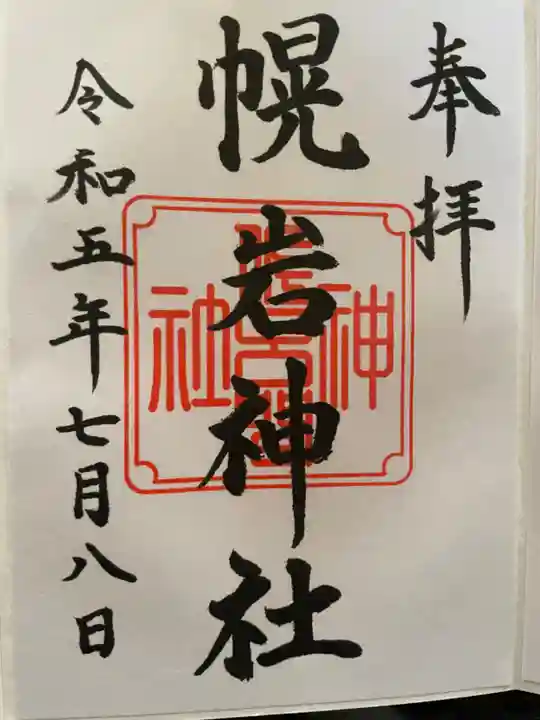 奉拝
幌岩神社
令和五年七月八日
神
社